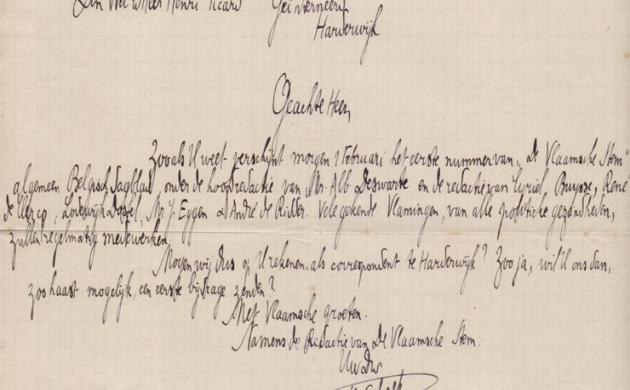 Den Weledelen Heer Henri Picard Geïnterneerde
Harderwijk
Geachte Heer,
Zooals U weet verschijnt morgen 1 Februari het eerste nummer van "de Vlaamsche Stem"
algemeen Belgisch Dagblad, onder de hoofdredactie van Mr. Alb. Deswarte en de redactie van Cyriel Buysse, René
de Clercq, Lodewijk Dosfel, Mr. J. Eggen & André de Ridder. Vele gekende Vlamingen, van alle politieke gezindheden,
zullen regelmatig medewerken.
Mogen wij dus op U rekenen, als correspondent te Harderwijk? Zoo ja, wil U ons dan,
zoo haast mogelijk, een eerste bijdrage zenden?
Met Vlaamsche groeten.
Namens de Redactie van De Vlaamsche Stem.
Uw dw